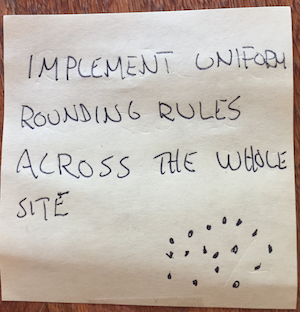 IMPLEMENT UNIFORM
ROUNDING RULES
ACROSS THE WHOLE
SITE